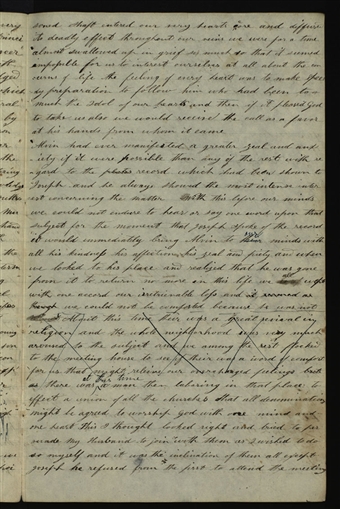 soned shaft entered our very hearts core and diffused
its deadly effect throughout our veins we were for a time
almost swallowed up in grief so much so that it seemed
impossible for us to interest ourselves at all about the con
cerns of life the feeling of every heart was to make speedy
preparation to follow him who had been too
much the idol of our hearts and then if it pleased God
to take us also we would receive the call as a favor
at his hands from whom it came
Alvin had ever manifested a greater zeal and anx
iety if it were possible than any of the rest with re
gard to the plates record which had been shown to
Joseph and he always showed the most intense inter
est concerning the matter With this before our minds
we could not endure to hear or say one word upon that
subject for the moment that Joseph spoke of the record
it would immediately bring Alvin to our minds with
all his kindness his affection his zeal and piety and when
we looked to his place and realized that he was gone
from it to return no more in this life we all wept
with one accord our irretrievable loss and
we could not be comforted because he was not
About this time their was a great revival in
religion and the whole neighborhood was very much
aroused to the subject and we among the rest flocked
to the meeting house to see if their was a word of comfort
for us that might relieve our overcharged feelings but
as there was at this time a man then laboring in that place to
effect a union of all the churches that all denominations
might be agreed to worship God with one mind and
one heart This I thought looked right and tried to per
suade my Husband to join with them as I wished to do
so myself and it was the inclination of them all except
Joseph he refused from the first to attend the meeting